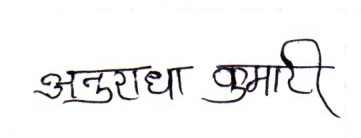 अनुराधा कुमारी